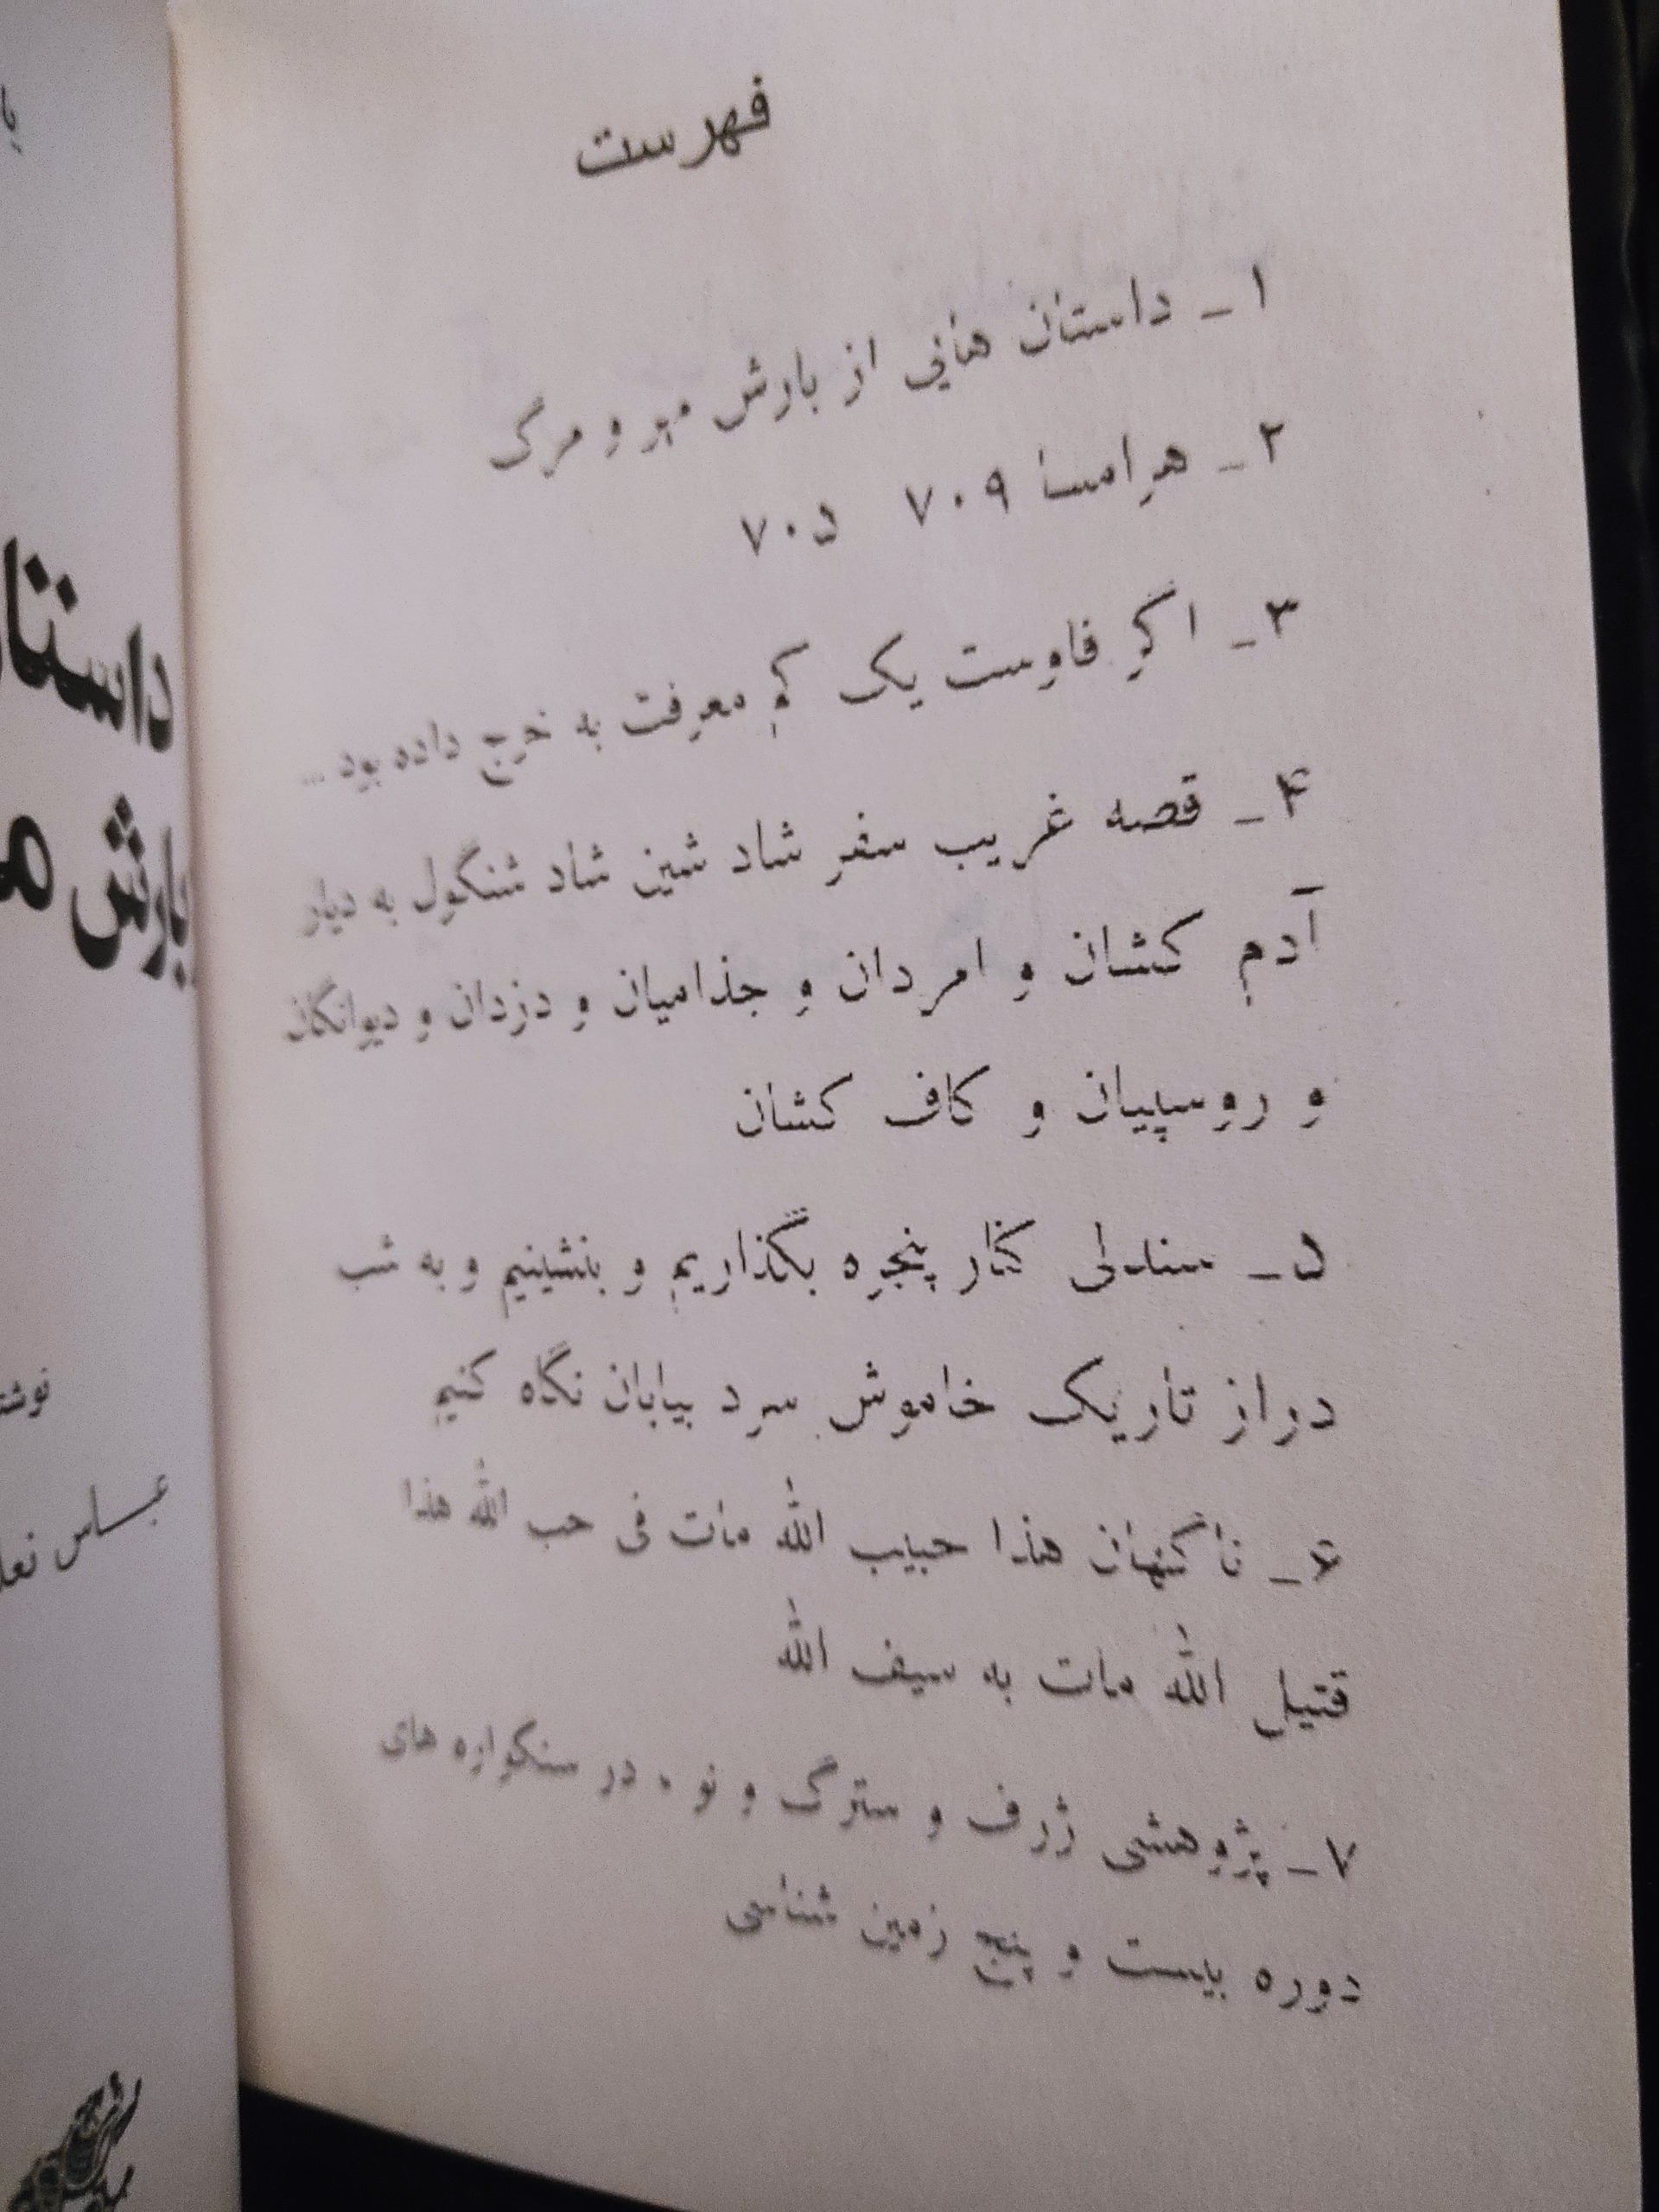 فهرست
۱ـ داستان هائی از بارش مهر و مرگ
۲ـ هرامسا ۷۰۹ ۷۰۵
۳ـ اگر فاوست یک کم معرفت به خرج داده بود ...
۴ـ قصه غریب سفر شاد شین شاد شنگول به دیار
آدم کشان و امردان و جذامیان و دزدان و دیوانگان
و روسپیان و کاف کشان
۵ـ سندلی کنار پنجره بگذاریم و بنشینیم و به شب
دراز تاریک خاموش سرد بیابان نگاه کنیم
۶ـ ناگهان هذا حبیب الله مات فی حب الله هذا
قتیل الله مات به سیف الله
۷ـ پژوهشی ژرف و سترگ و نو ، در سنگواره های
دوره بیست و پنج زمین شناسی
بارش
عباس